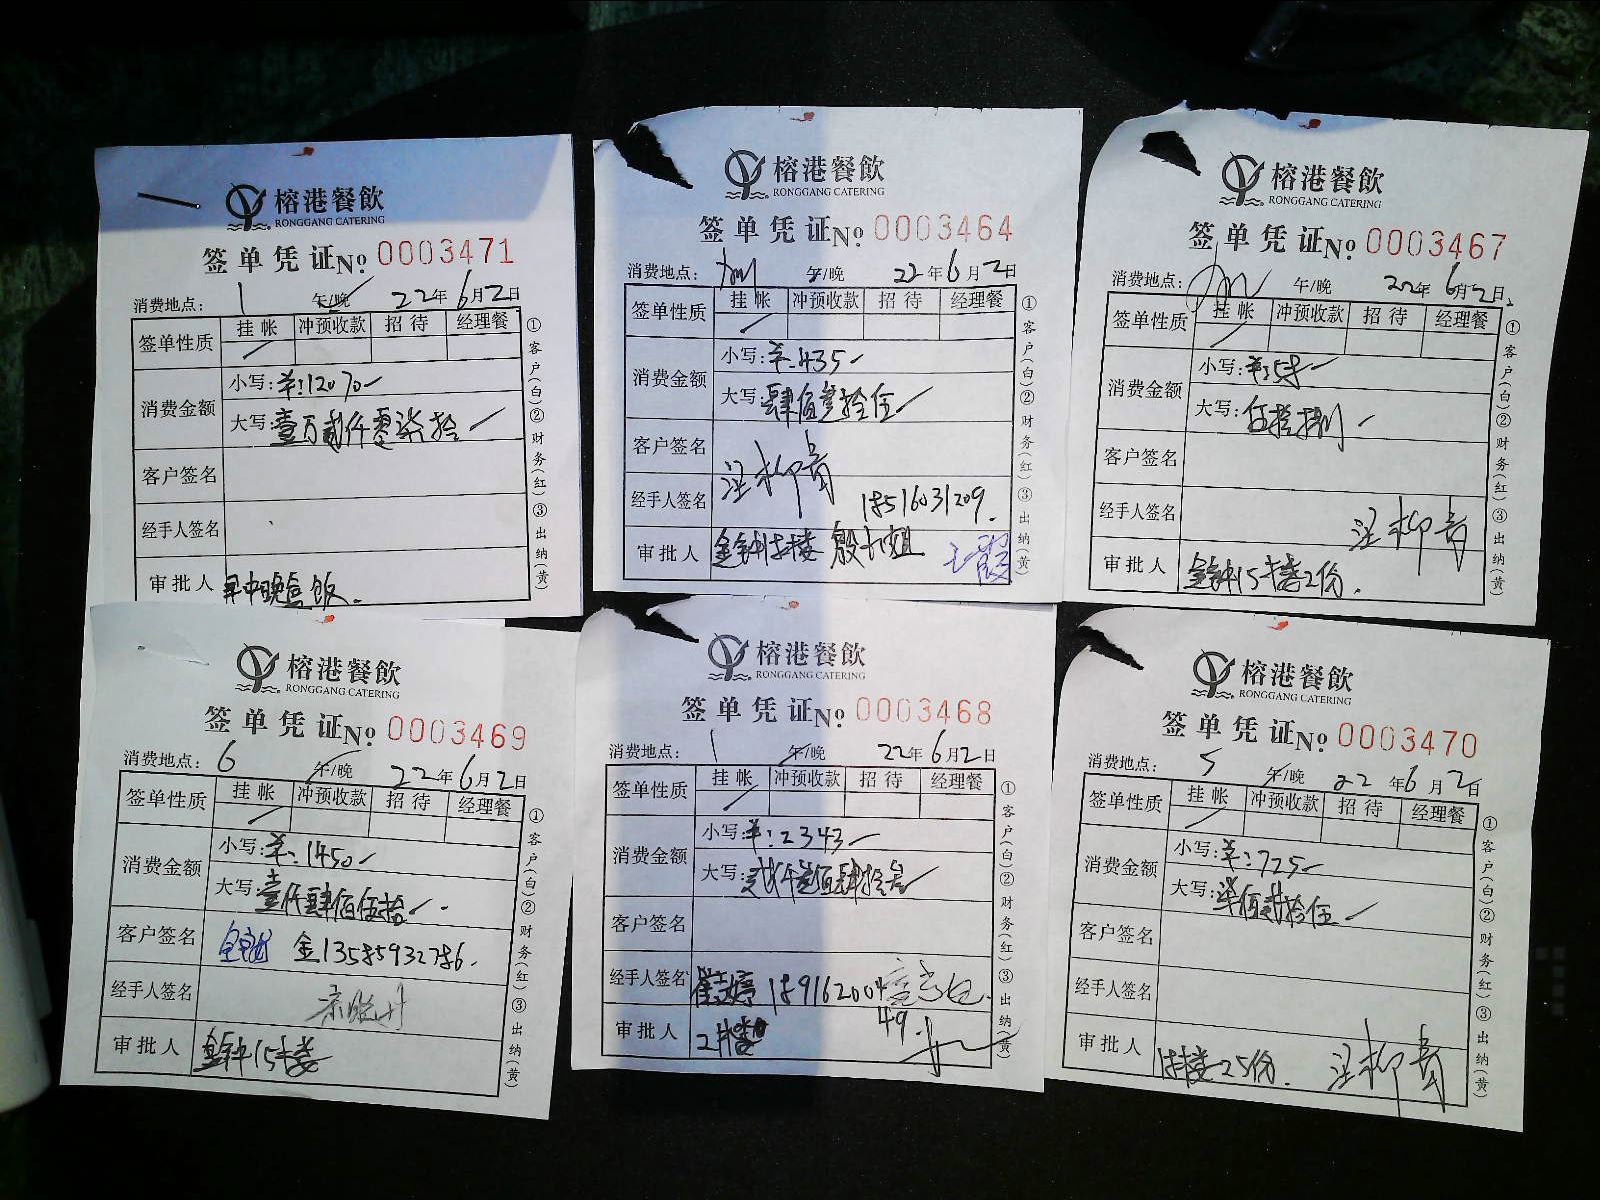 榕港餐飲
RONGGANG CATERING
签单凭证№ 0003471
消费地点: 1 午/晚 22年6月2日
签单性质 挂帐 冲预收款 招待 经理餐
消费金额 小写:¥:12070
大写:壹万贰仟零柒拾
客户签名
经手人签名
审批人 早中晚盒饭.
①客户(白)②财务(红)③出纳(黄)
榕港餐飲
RONGGANG CATERING
签单凭证№ 0003464
消费地点: 午/晚 22年6月2日
签单性质 挂帐 冲预收款 招待 经理餐
消费金额 小写:¥435
大写:肆佰叁拾伍
客户签名 汪柳青
经手人签名 18516031209.
审批人 金钟15楼 殷大姐 王霞
①客户(白)②财务(红)③出纳(黄)
榕港餐飲
RONGGANG CATERING
签单凭证№ 0003467
消费地点: 午/晚 2022年6月2日
签单性质 挂帐 冲预收款 招待 经理餐
消费金额 小写:¥:58
大写:伍拾捌
客户签名
经手人签名 汪柳青
审批人 金钟15楼2份.
①客户(白)②财务(红)③出纳(黄)
榕港餐飲
RONGGANG CATERING
签单凭证№ 0003469
消费地点: 6 午/晚 22年6月2日
签单性质 挂帐 冲预收款 招待 经理餐
消费金额 小写:¥:1450
大写:壹仟肆佰伍拾
客户签名 金 13585932786.
经手人签名
审批人 金钟15楼
①客户(白)②财务(红)③出纳(黄)
榕港餐飲
RONGGANG CATERING
签单凭证№ 0003468
消费地点: 1 午/晚 22年6月2日
签单性质 挂帐 冲预收款 招待 经理餐
消费金额 小写:¥:2343
大写:贰仟叁佰肆拾叁
客户签名
经手人签名 189162004
审批人 2楼 49.
①客户(白)②财务(红)③出纳(黄)
榕港餐飲
RONGGANG CATERING
签单凭证№ 0003470
消费地点: 5 午/晚 22年6月2日
签单性质 挂帐 冲预收款 招待 经理餐
消费金额 小写:¥:725
大写:柒佰贰拾伍
客户签名
经手人签名
审批人 15楼25份. 汪柳青
①客户(白)②财务(红)③出纳(黄)